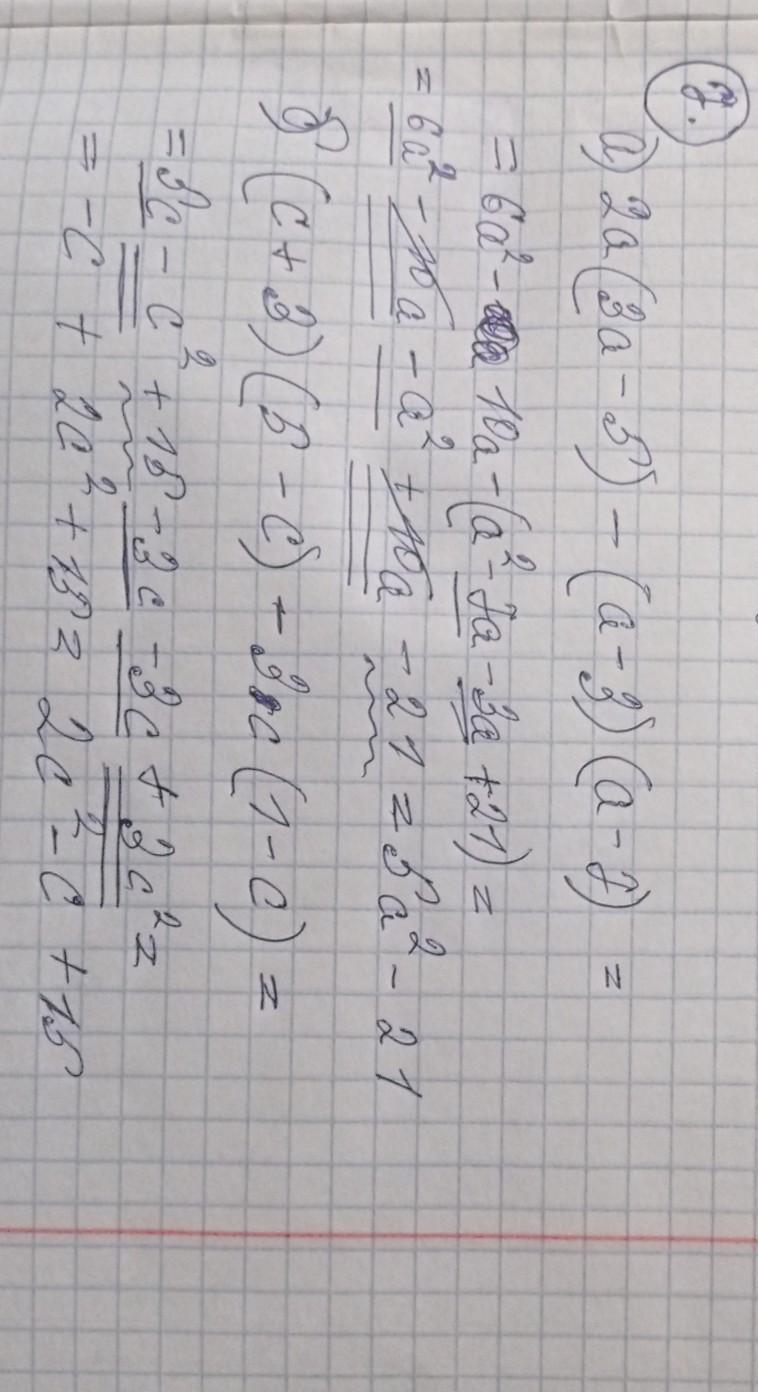 7.
а) 2a(3a - 5) - (a - 3)(a - 7) =
= 6a² - 10a - (a² - 7a - 3a + 21) =
= 6a² - 10a - a² + 10a - 21 = 5a² - 21
б) (c + 3)(5 - c) - 3c(1 - c) =
= 5c - c² + 15 - 3c - 3c + 3c² =
= -c + 2c² + 15 = 2c² - c + 15